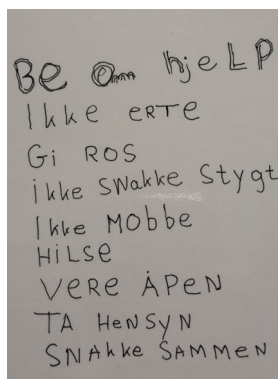 Be om hjeLP
Ikke eRTe
Gi ROS
ikke SNakke Stygt
Ikke MObbe
HiLSe
VeRe ÅPeN
TA HeNSyN
SNAkke SAMMeN